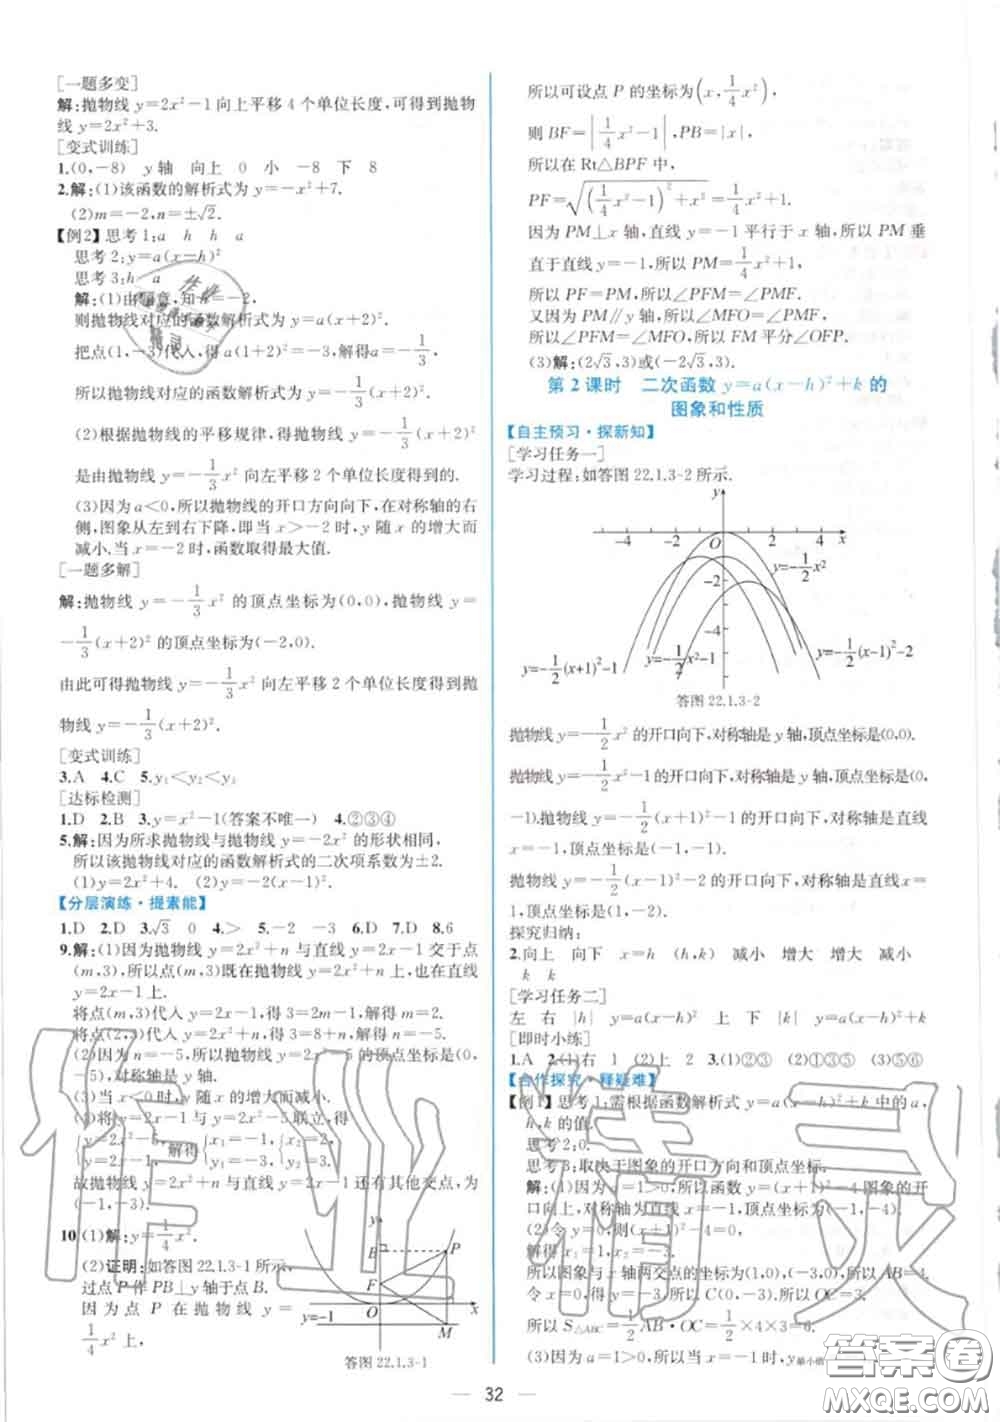 [一题多变]
解:抛物线 y=2x²-1 向上平移 4 个单位长度,可得到抛物
线 y=2x²+3.
[变式训练]
1.(0,-8) y 轴 向上 0 小 -8 下 8
2.解:(1)该函数的解析式为 y=-x²+7.
(2)m=-2,n=±√2.
【例2】思考 1:a h h a
思考 2:y=a(x-h)²
思考 3:h a
解:(1)由题意,知 h=-2,
则抛物线对应的函数解析式为 y=a(x+2)².
把点(1,-3)代入,得 a(1+2)²=-3,解得 a=-1/3,
所以抛物线对应的函数解析式为 y=-1/3(x+2)².
(2)根据抛物线的平移规律,得抛物线 y=-1/3(x+2)²
是由抛物线 y=-1/3x² 向左平移 2 个单位长度得到的.
(3)因为 a<0,所以抛物线的开口方向向下,在对称轴的右
侧,图象从左到右下降,即当 x>-2 时,y 随 x 的增大而
减小.当 x=-2 时,函数取得最大值.
[一题多解]
解:抛物线 y=-1/3x² 的顶点坐标为(0,0),抛物线 y=
-1/3(x+2)² 的顶点坐标为(-2,0).
由此可得抛物线 y=-1/3x² 向左平移 2 个单位长度得到抛
物线 y=-1/3(x+2)².
[变式训练]
3.A 4.C 5.y₁<y₂<y₃
[达标检测]
1.D 2.B 3.y=x²-1(答案不唯一) 4.②③④
5.解:因为所求抛物线与抛物线 y=-2x² 的形状相同,
所以该抛物线对应的函数解析式的二次项系数为±2.
(1)y=2x²+4. (2)y=-2(x-3)².
【分层演练·提素能】
1.D 2.D 3.√3 0 4.> 5.-2 -3 6.D 7.D 8.6
9.解:(1)因为抛物线 y=2x²+n 与直线 y=2x-1 交于点
(m,3),所以点(m,3)既在抛物线 y=2x²+n 上,也在直线
y=2x-1 上.
将点(m,3)代入 y=2x-1,得 3=2m-1,解得 m=2.
将点(2,3)代入 y=2x²+n,得 3=8+n,解得 n=-5.
(2)因为 n=-5,所以抛物线 y=2x²-5 的顶点坐标是(0,
-5),对称轴是 y 轴.
(3)当 x<0 时,y 随 x 的增大而减小.
(4)将抛物线 y=2x²-5 与直线 y=2x-1 联立,得
{y=2x²-5, y=2x-1, 解得{x₁=-1, y₁=-3, {x₂=2, y₂=3.
故抛物线 y=2x²-5 与直线 y=2x-1 还有其他交点,为
(-1,-3).
10.(1)解:y=1/4x².
(2)证明:如答图 22.1.3-1 所示,
过点 P 作 PB⊥y 轴于点 B.
因为点 P 在抛物线 y=
1/4x² 上,
y
B
P
F
O
x
y=-1
M
答图 22.1.3-1
所以可设点 P 的坐标为(x,1/4x²),
则 BF=|1/4x²-1|,PB=|x|,
所以在 Rt△BPF 中,
PF=√((1/4x²-1)²+x²)=1/4x²+1.
因为 PM⊥x 轴,直线 y=-1 平行于 x 轴,所以 PM 垂
直于直线 y=-1,所以 PM=1/4x²+1,
所以 PF=PM,所以∠PFM=∠PMF.
又因为 PM∥y 轴,所以∠MFO=∠PMF,
所以∠PFM=∠MFO,所以 FM 平分∠OFP.
(3)解:(2√3,3)或(-2√3,3).
第 2 课时 二次函数 y=a(x-h)²+k 的
图象和性质
【自主预习·探新知】
[学习任务一]
学习过程:如答图 22.1.3-2 所示.
y
-4 -2 O 2 4 x
-2
-4
y=-1/2x²
y=-1/2(x+1)²-1
y=-1/2x²-1
y=-1/2(x-1)²-2
答图 22.1.3-2
抛物线 y=-1/2x² 的开口向下,对称轴是 y 轴,顶点坐标是(0,0).
抛物线 y=-1/2x²-1 的开口向下,对称轴是 y 轴,顶点坐标是(0,
-1).抛物线 y=-1/2(x+1)²-1 的开口向下,对称轴是直线
x=-1,顶点坐标是(-1,-1).
抛物线 y=-1/2(x-1)²-2 的开口向下,对称轴是直线 x=
1,顶点坐标是(1,-2).
探究归纳:
2.向上 向下 x=h (h,k) 减小 增大 增大 减小
k k
[学习任务二]
左 右 |h| y=a(x-h)² 上 下 |k| y=a(x-h)²+k
[即时小练]
1.A 2.(1)右 1 (2)上 2 3.(1)②③ (2)①③④ (3)⑤⑥
【合作探究·释疑难】
【例1】思考 1:需根据函数解析式 y=a(x-h)²+k 中的 a,
h,k 的值.
思考 2:0.
思考 3:取决于图象的开口方向和顶点坐标.
解:(1)因为 a=1>0,所以函数 y=(x+1)²-4 图象的开
口向上,对称轴为直线 x=-1,顶点坐标为(-1,-4).
(2)令 y=0,则(x+1)²-4=0,
解得 x₁=1,x₂=-3.
所以图象与 x 轴两交点的坐标为(1,0),(-3,0),所以 AB=4.
令 x=0,得 y=-3,所以 C(0,-3),所以 OC=3.
所以 S△ABC=1/2AB·OC=1/2×4×3=6.
(3)因为 a=1>0,所以当 x=-1 时,y最小值
32
作业精灵
答案圈
MXQE.COM